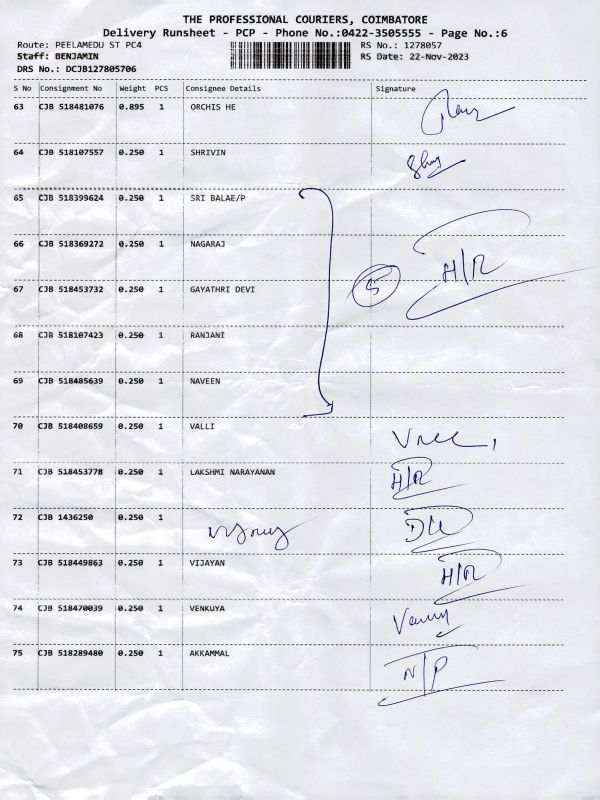 THE PROFESSIONAL COURIERS, COIMBATORE
Delivery Runsheet - PCP - Phone No.:0422-3505555 - Page No.:6
Route: PEELAMEDU ST PC4 RS No.: 1278057
Staff: BENJAMIN RS Date: 22-Nov-2023
DRS No.: DCJB127805706
S No Consignment No Weight PCS Consignee Details Signature
63 CJB 518481076 0.895 1 ORCHIS HE
64 CJB 518107557 0.250 1 SHRIVIN
65 CJB 518399624 0.250 1 SRI BALAE/P
66 CJB 518369272 0.250 1 NAGARAJ H/R
67 CJB 518453732 0.250 1 GAYATHRI DEVI 5
68 CJB 518107423 0.250 1 RANJANI
69 CJB 518485639 0.250 1 NAVEEN
70 CJB 518408659 0.250 1 VALLI
71 CJB 518453778 0.250 1 LAKSHMI NARAYANAN H/R
72 CJB 1436250 0.250 1
73 CJB 518449863 0.250 1 VIJAYAN H/R
74 CJB 518470039 0.250 1 VENKUYA
75 CJB 518289480 0.250 1 AKKAMMAL N/P